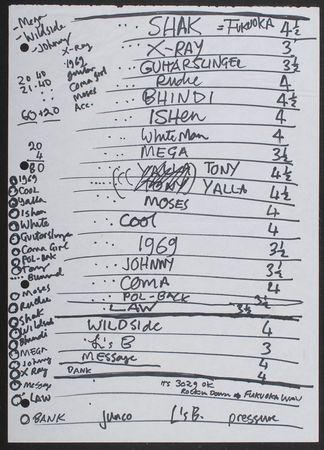 Mega
Wildside
Johnny
X-Ray
1969
guitar
Coma Girl
Moses
Acc.
20.40
21.40
60+20
20
4
80
SHAK = FUKUOKA 4½
X-RAY 3
GUITARSLINGEL 3½
Rudie 4
BHINDI 4½
IShen 4
White Man 4
MEGA 3½
YALLA TONY 4½
TONY YALLA 4½
MOSES 4
COOL 4
1969 3½
JOHNNY 3½
COMA 4
POL-BACK 3½
LAW 3½
WILDSide 4
L's B 3
Message 4
BANK 4
1969
COOL
Yalla
Ishen
White
Guitarslinger
Coma Girl
POL-BAK
Tony
Moses
Rudie
Shak
Wildside
Bhindi
MEGA
Johny
X Ray
Message
LAW
BANK
its 3029 OK
Rockin Down → FUKUOKA
Junco L's B. pressure